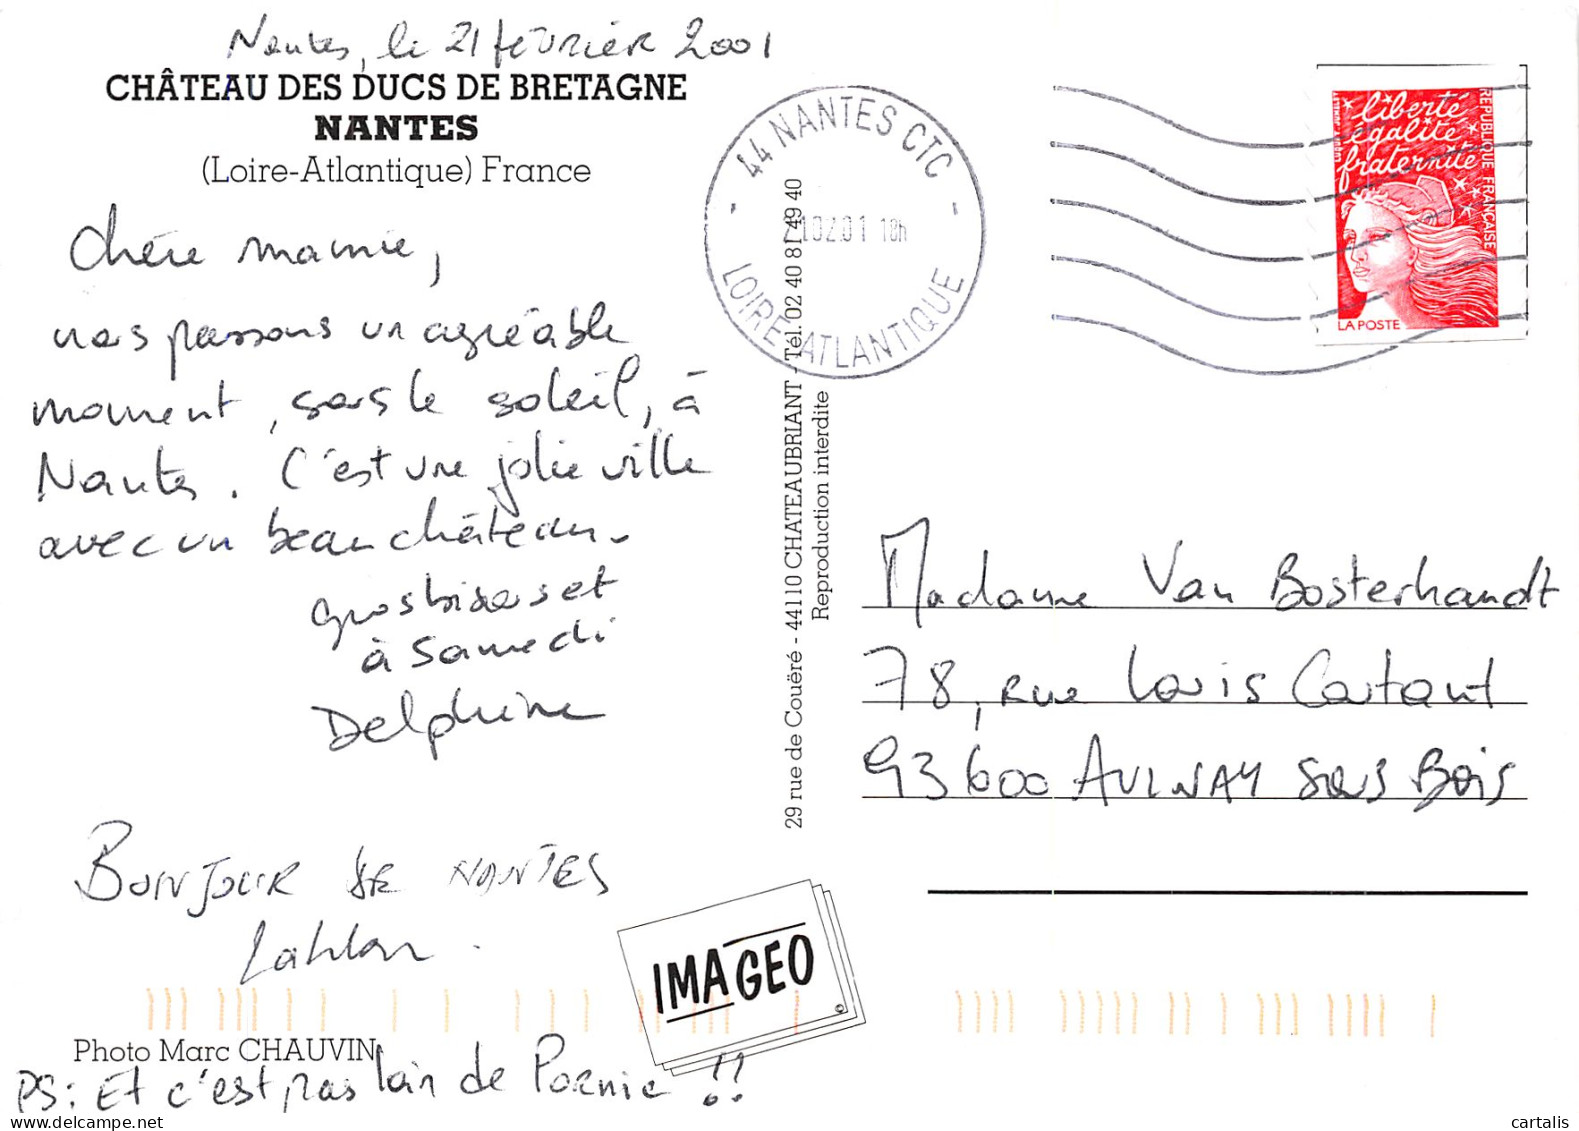 Nantes, le 21 février 2001
CHÂTEAU DES DUCS DE BRETAGNE
NANTES
(Loire-Atlantique) France
Chère mamie,
nous passons un agréable
moment, sous le soleil, à
Nantes. C'est une jolie ville
avec un beau château.
Gros bisous et
à samedi
Delphine
BONJOUR DE NANTES
Photo Marc CHAUVIN
PS: Et c'est pas loin de Pornic !!
IMAGEO
29 rue de Couëré - 44110 CHATEAUBRIANT - Tél. 02 40 81 49 40
Reproduction interdite
44 NANTES CTC
210201 18h
LOIRE-ATLANTIQUE
liberté
égalité
fraternité
REPUBLIQUE FRANÇAISE
LA POSTE
Madame Van Bosterhandt
78, rue Louis Coutant
93600 AULNAY sous Bois
cartalis